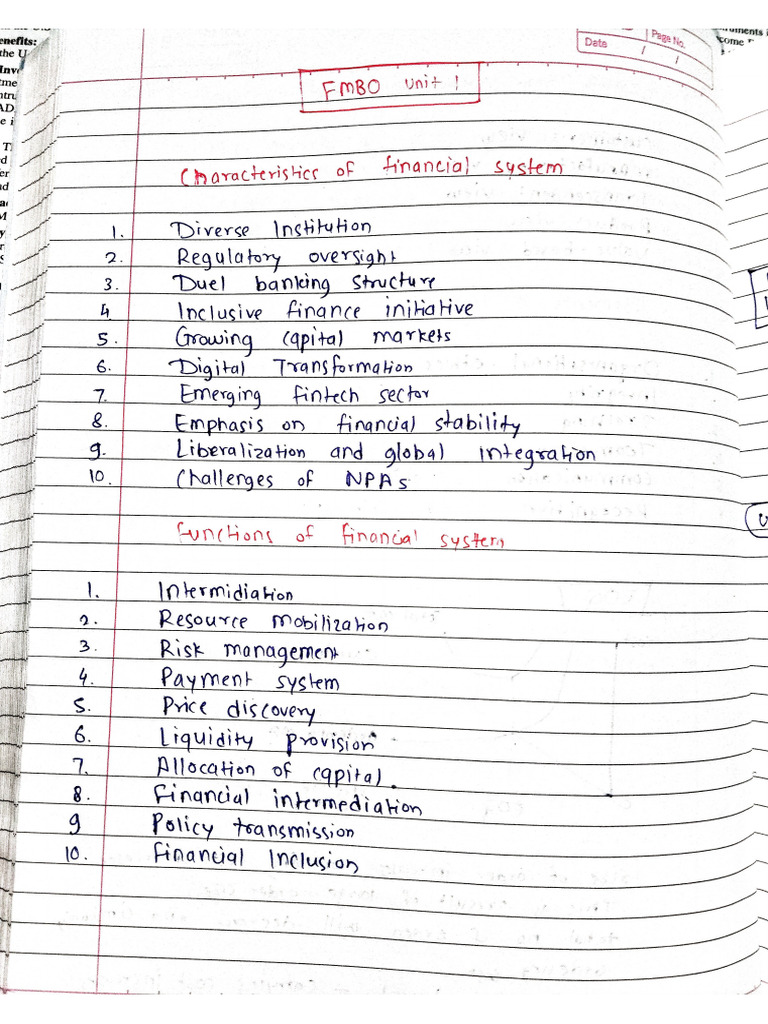 enefits:
the U
Inv
Date / /
Page No.
FMBO Unit 1
Characteristics of financial system
1. Diverse Institution
2. Regulatory oversight
3. Duel banking structure
4 Inclusive finance initiative
5. Growing capital markets
6. Digital Transformation
7. Emerging fintech sector
8. Emphasis on financial stability
9. Liberalization and global integration
10. Challenges of NPAs
Functions of financial system
1. Intermidiation
2. Resource Mobilization
3. Risk management
4. Payment system
5. Price discovery
6. Liquidity provision
7. Allocation of capital.
8. Financial intermediation
9 Policy transmission
10. Financial Inclusion